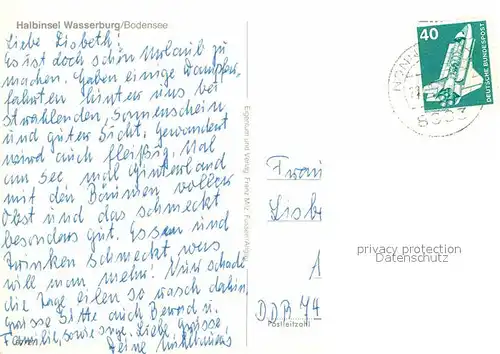 Halbinsel Wasserburg/Bodensee
Liebe Lisbeth!
Es ist doch schön Urlaub zu
machen. Haben einige Dampfer-
fahrten hinter uns bei
strahlenden Sonnenschein
und guter Sicht. Gewandert
wird auch fleißig. Mal
am See mal Hinterland
mit den Bäumen voller
Obst und das schmeckt
besonders gut. Essen und
Trinken schmeckt, was
will man mehr! Nur schade
die Tage eilen so rasch dahin.
Grüsse bitte auch Bernd u.
Familie, sowie sage. Liebe Grüsse,
Deine
Eigentum und Verlag Franz Milz, Füssen/Allgäu
40
DEUTSCHE BUNDESPOST
Frau
Lisb
A
DDR 74
Postleitzahl
privacy protection
Datenschutz